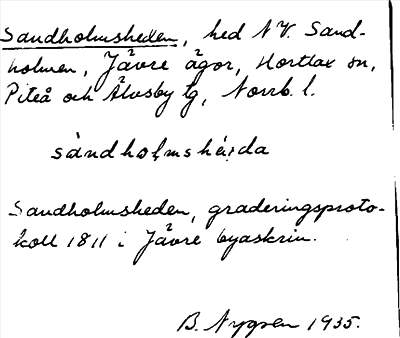 Sandholmsheden, hed N.V. Sand-
holmen, Jävre ägor, Hortlax sn,
Piteå och Älvsby tg, Norrb. l.
sàndhoļmshé̩da
Sandholmsheden, graderingsproto-
koll 1811 i Jävre byaskrin.
B. Nygren 1935.